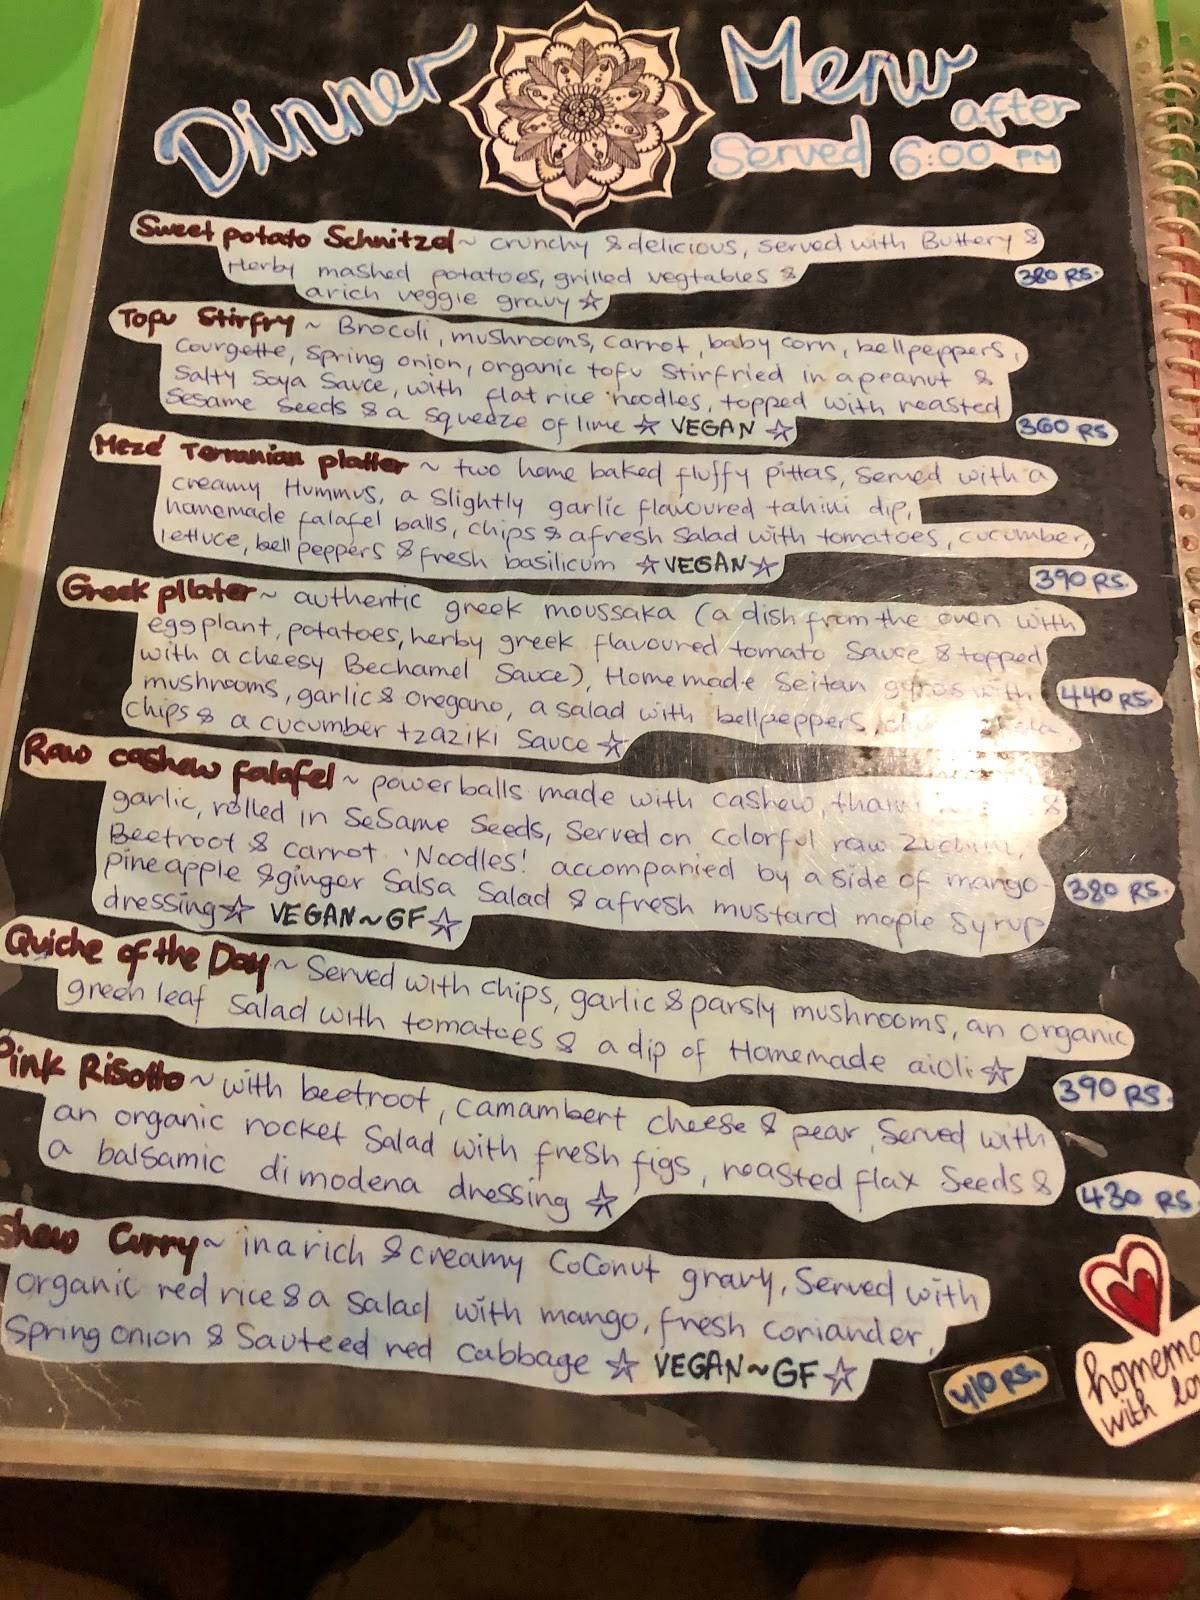 Dinner Menu
Served after 6:00 PM
Sweet potato Schnitzel ~ crunchy & delicious, served with Buttery &
Herby mashed potatoes, grilled vegtables &
a rich veggie gravy ☆
380 RS.
Tofu Stirfry ~ Brocoli, mushrooms, carrot, baby corn, bellpeppers,
Courgette, spring onion, organic tofu stirfried in a peanut &
Salty Soya Sauce, with flat rice noodles, topped with roasted
Sesame Seeds & a squeeze of lime ☆ VEGAN ☆
360 RS
Mezé Terranian platter ~ two home baked fluffy pittas, served with a
creamy Hummus, a slightly garlic flavoured tahini dip,
homemade falafel balls, chips & a fresh salad with tomatoes, cucumber,
lettuce, bell peppers & fresh basilicum ☆ VEGAN ☆
390 RS.
Greek pllater ~ authentic greek moussaka (a dish from the oven with
eggplant, potatoes, herby greek flavoured tomato sauce & topped
with a cheesy Bechamel Sauce), Homemade Seitan gyros with
mushrooms, garlic & oregano, a salad with bellpeppers,
chips & a cucumber tzaziki sauce ☆
440 RS.
Raw cashew falafel ~ powerballs made with cashew, &
garlic, rolled in SeSame Seeds, Served on colorful raw
Beetroot & carrot 'Noodles! accompanied by a side of mango-
pineapple & ginger Salsa Salad & a fresh mustard maple Syrup
dressing ☆ VEGAN ~ GF ☆
380 RS.
Quiche of the Day ~ Served with chips, garlic & parsly mushrooms, an organic
green leaf Salad with tomatoes & a dip of Homemade aioli ☆
390 RS.
Pink Risotto ~ with beetroot, camambert cheese & pear, Served with
an organic rocket Salad with fresh figs, roasted flax Seeds &
a balsamic di modena dressing ☆
430 RS.
shew Curry ~ in a rich & creamy coconut gravy, Served with
organic red rice & a salad with mango, fresh coriander,
Spring onion & Sauteed red cabbage ☆ VEGAN ~ GF ☆
410 RS.
homema
with lov